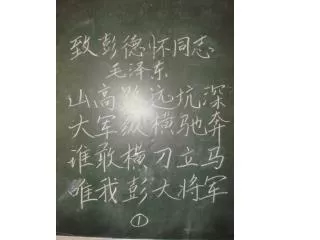 致彭德怀同志
毛泽东
山高路远坑深
大军纵横驰奔
谁敢横刀立马
唯我彭大将军
①